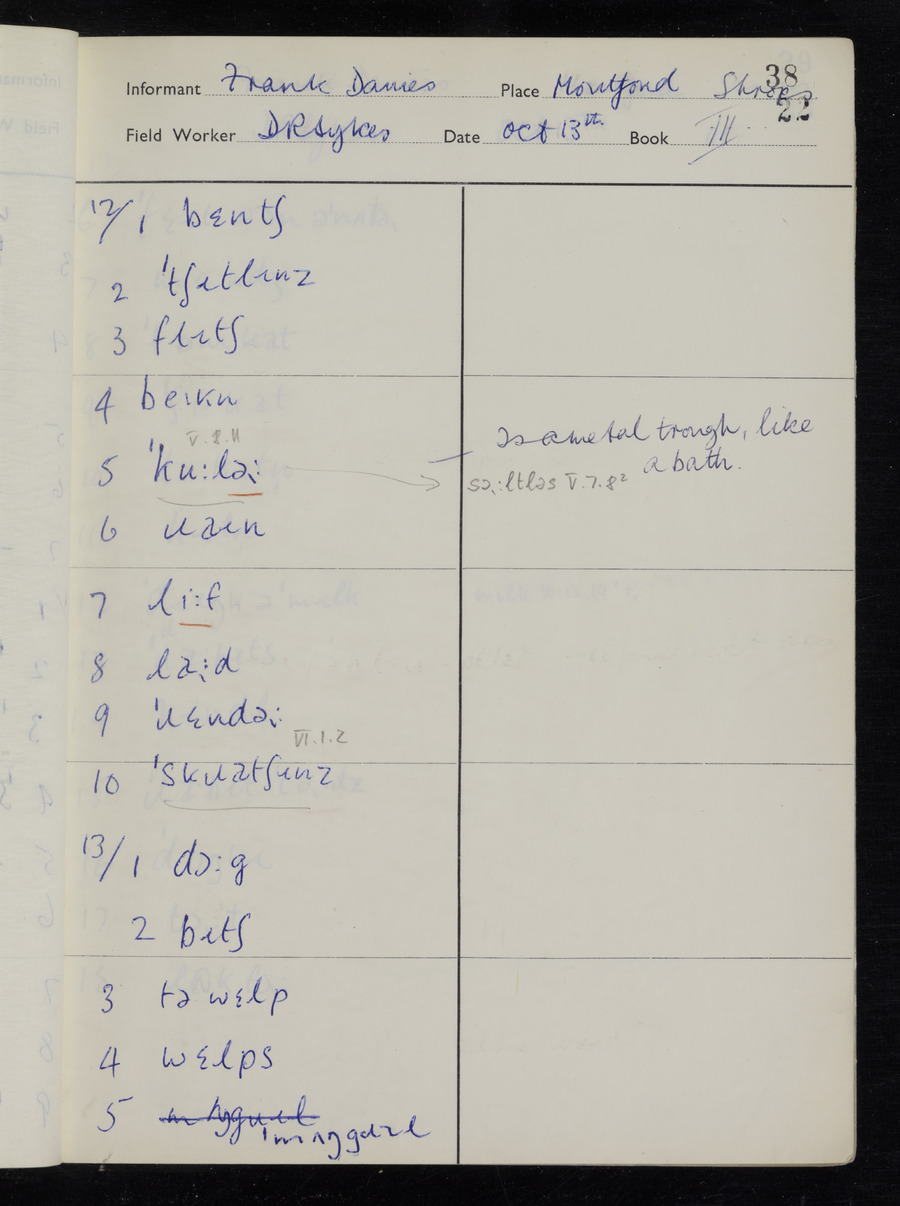 38
Informant Frank Davies Place Montford Shrops
22
Field Worker D R Sykes Date Oct 13th Book III
12/1 bɛntʃ
2 ˈtʃɪtlɪnz
3 flɪtʃ
4 beɪkn
V.8.11
5 ˈkuːləɹː
Is a metal trough, like
a bath.
səɹːltləs V.7.8²
6 ɹaɪn
7 liːf
8 laːd
9 ˈɹɛndəɹː
VI.1.2
10 ˈskɹatʃɪnz
13/1 dɔːg
2 bɪtʃ
3 tə wɛlp
4 wɛlps
5 ˈmʌŋgəɹɪl